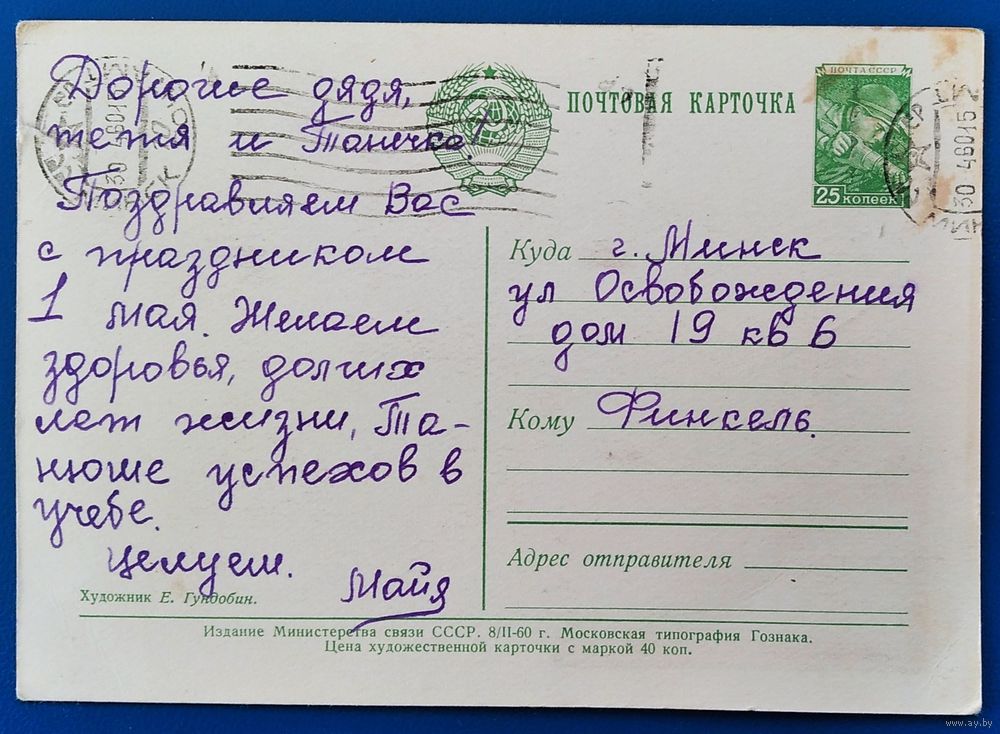 Дорогие дядя,
тетя и Танечка!
Поздравляем Вас
с праздником
1 мая. Желаем
здоровья, долгих
лет жизни, Та-
нюше успехов в
учебе.
Целуем.
Майя
Художник Е. Гундобин.
ПОЧТОВАЯ КАРТОЧКА
ПОЧТА СССР
25 копеек
Куда г. Минск
ул Освобождения
дом 19 кв 6
Кому Финкель.
Адрес отправителя
Издание Министерства связи СССР. 8/II-60 г. Московская типография Гознака.
Цена художественной карточки с маркой 40 коп.
www.ay.by